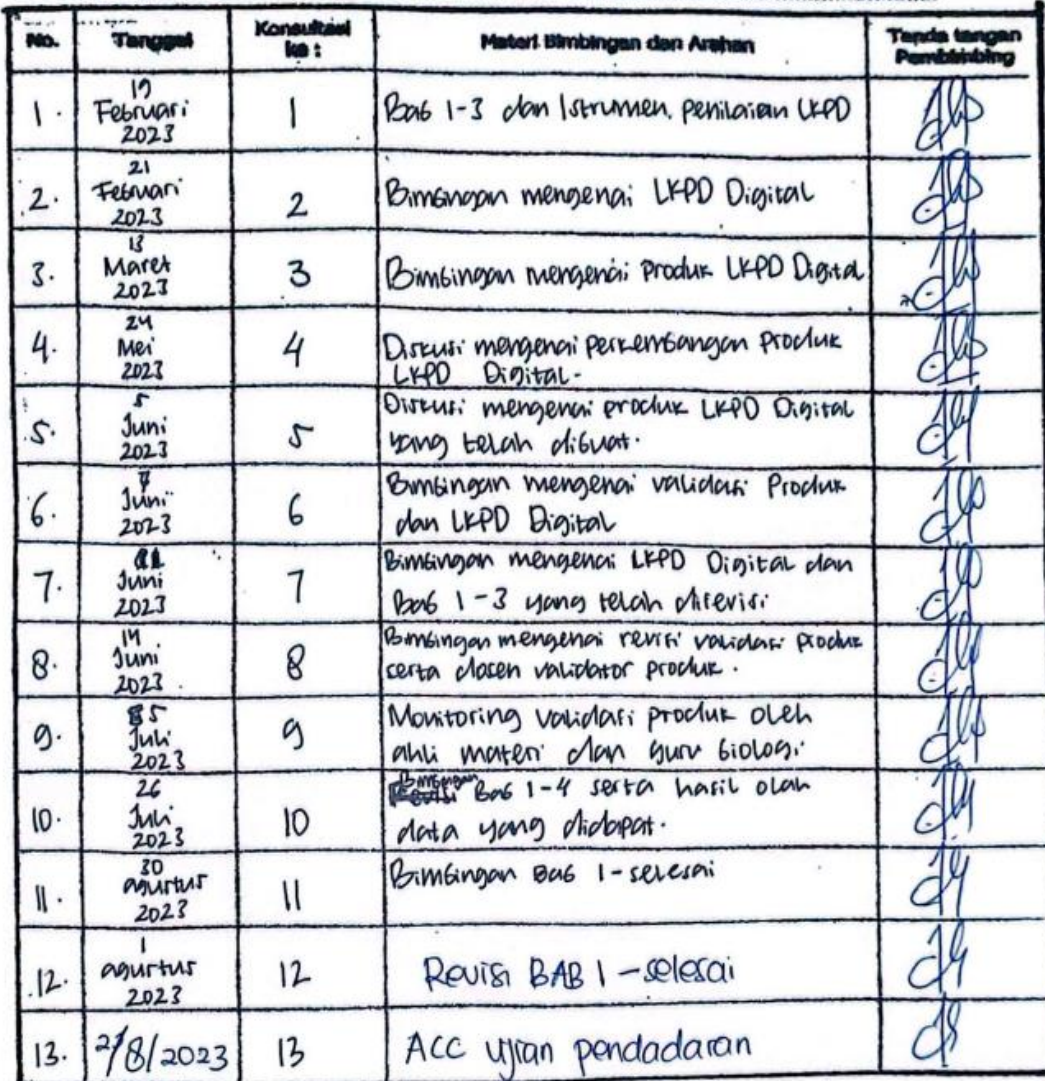 No. Tanggal Konsultasi ke : Materi Bimbingan dan Arahan Tanda tangan Pembimbing
1. 19 Februari 2023 1 Bab 1-3 dan Istrumen. penilaian LKPD
2. 21 Februari 2023 2 Bimbingan mengenai LKPD Digital
3. 13 Maret 2023 3 Bimbingan mengenai Produk LKPD Digital
4. 24 Mei 2023 4 Diskusi mengenai perkembangan Produk
LKPD Digital.
5. 5 Juni 2023 5 Diskusi mengenai produk LKPD Digital
yang telah dibuat.
6. 7 Juni 2023 6 Bimbingan mengenai validasi Produk
dan LKPD Digital
7. Juni 2023 7 Bimbingan mengenai LKPD Digital dan
Bab 1-3 yang telah direvisi
8. 14 Juni 2023 8 Bimbingan mengenai revisi validasi produk
serta dosen validator produk.
9. 5 Juli 2023 9 Monitoring validasi produk oleh
ahli materi dan guru biologi.
10. 26 Juli 2023 10 Bimbingan Bab 1-4 serta hasil olah
data yang didapat.
11. 30 agustus 2023 11 Bimbingan Bab 1-selesai
12. 1 agustus 2023 12 Revisi BAB 1 - selesai
13. /8/2023 13 ACC ujian pendadaran